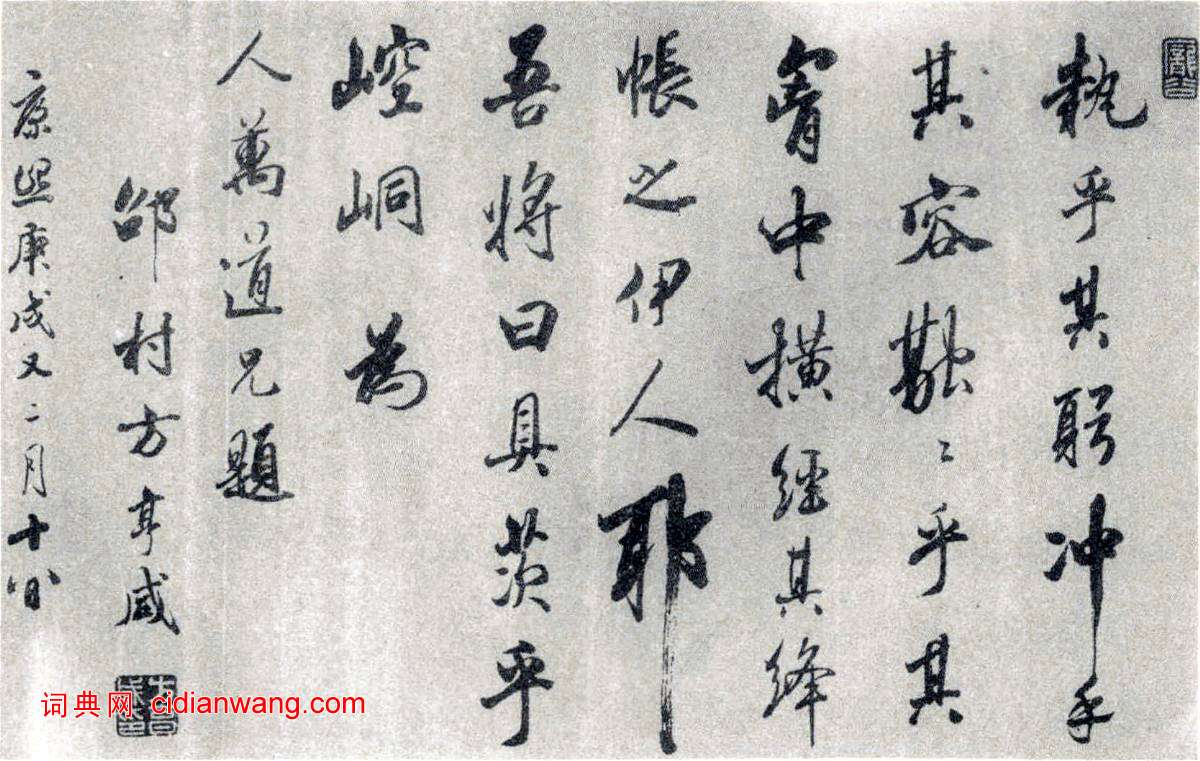 乎其冲乎
其容乎其
胷中横經其絳
帳之伊人耶
吾將曰具茨乎
崆峒為
人萬道兄題
邵村方亨咸
康熙庚戌又二月十八日
词典网 cidianwang.com